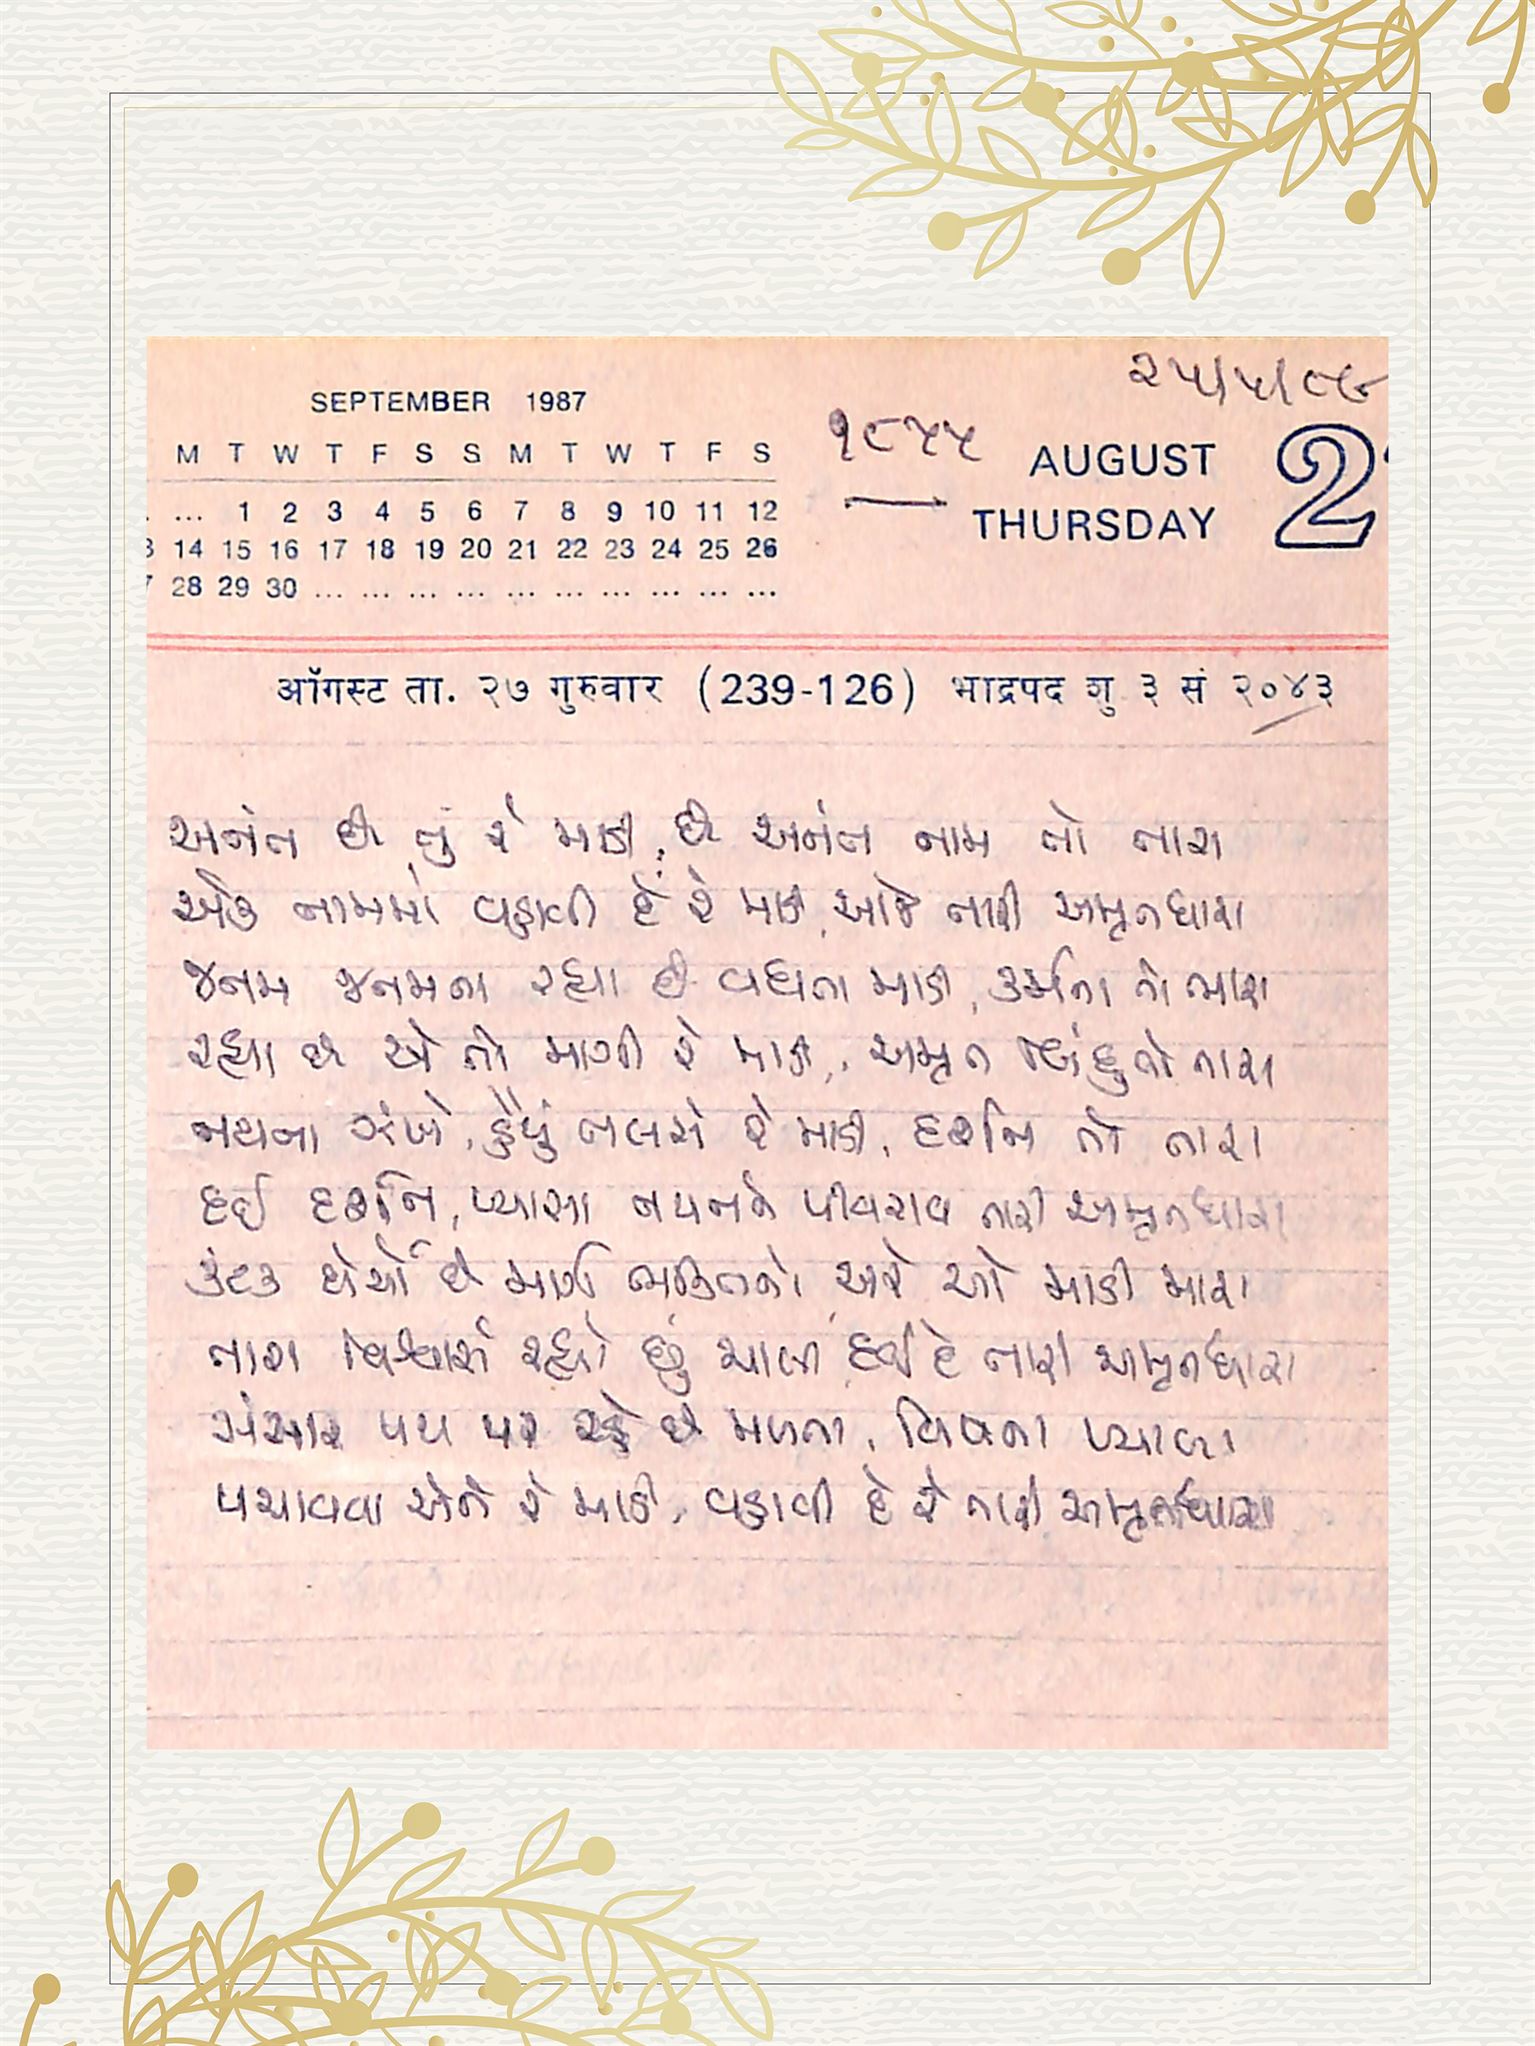 ૨૫/૫/૮૯
SEPTEMBER 1987
૧૮૫૫
M T W T F S S M T W T F S
AUGUST
THURSDAY
2
... 1 2 3 4 5 6 7 8 9 10 11 12
14 15 16 17 18 19 20 21 22 23 24 25 26
28 29 30 ... ... ... ... ... ... ... ... ... ...
ऑगस्ट ता. २७ गुरुवार (239-126) भाद्रपद शु ३ सं २०४३
અનંત છે તું રે માડી, છે અનંત નામ તો તારા
એક નામમાં વહાવી દે રે માડી, આજે તારી અમૃતધારા
જનમ જનમના રહ્યા છે વધતા માડી, કર્મના તો ભારા
રહ્યા છે એ તો માગી રે માડી, અમૃત બિંદુતો તારા
નયના ઝંખે, હૈયું તલસે રે માડી, દર્શન તો તારા
દઈ દર્શન, પ્યાસા નયનને પીવરાવ તારી અમૃતધારા
કંટક ઘેર્યો છે માર્ગ ભક્તિનો, અરે ઓ માડી મારા
તારા વિશ્વાસે રહ્યો છું ચાલી, દઈ દે તારી અમૃતધારા
સંસાર પથ પર રહે છે મળતા, વિષના પ્યાલા
પચાવવા એને રે માડી, વહાવી દે રે તારી અમૃતધારા